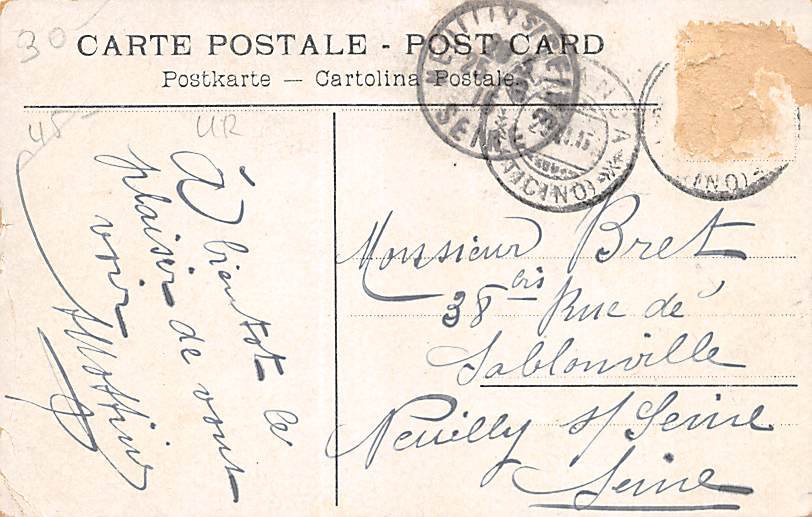 30
CARTE POSTALE - POST CARD
Postkarte — Cartolina Postale.
UR
à bientôt le
plaisir de vous
voir
Monsieur Bret
38 bis Rue de
Sablonville
Neuilly s/ Seine
Seine
NEUILLY S SEINE
SEINE
(TICINO)